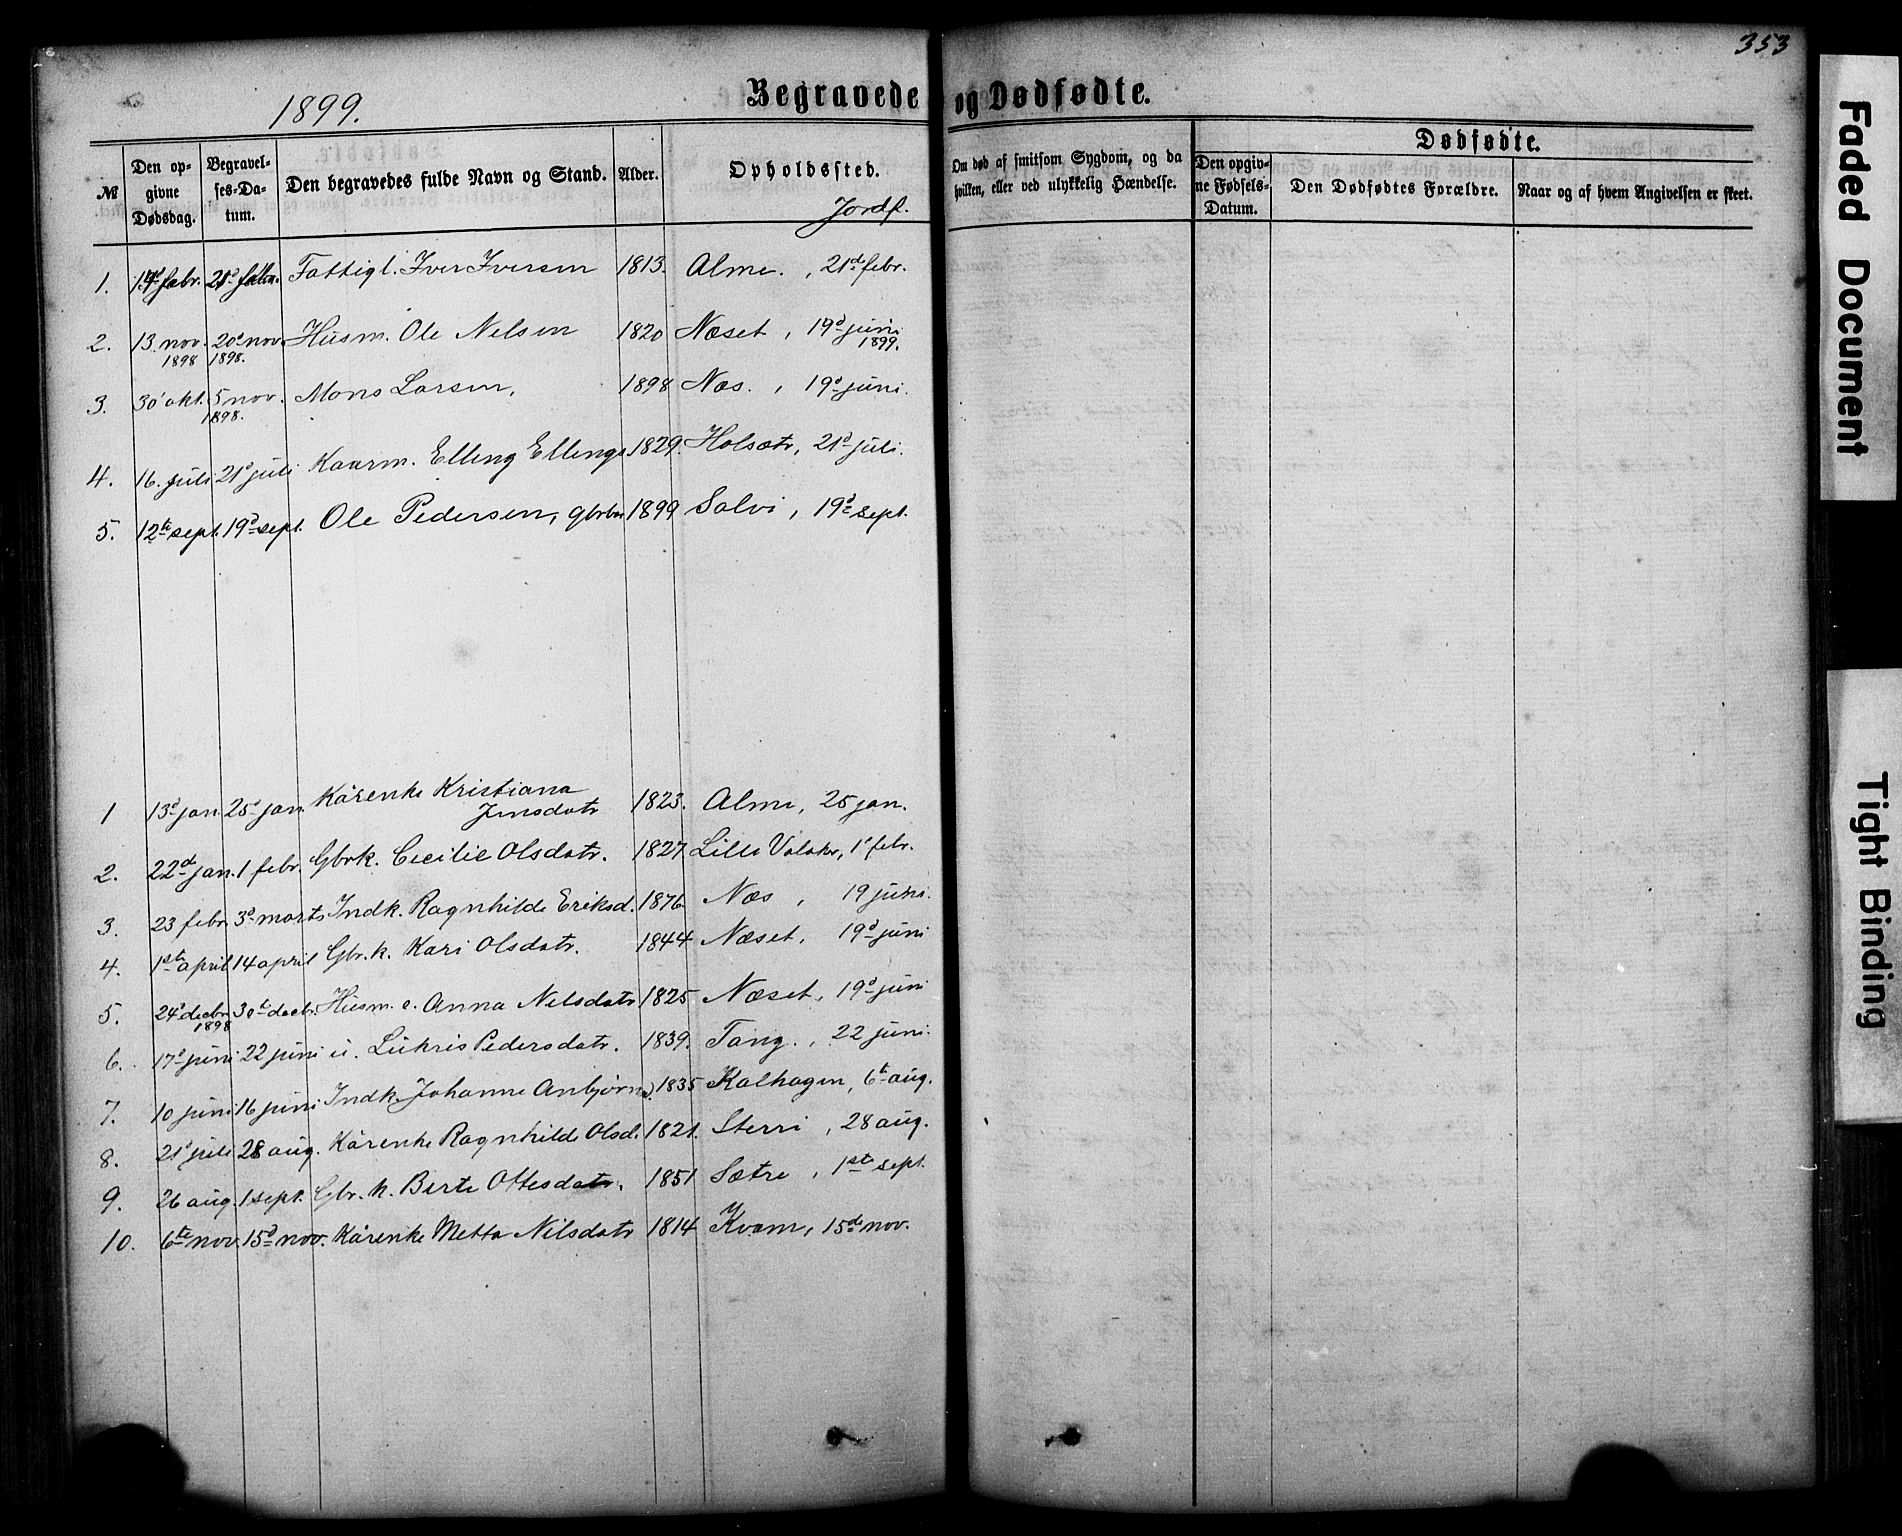 353
1899. Begravede og Dødfødte.
№ Den opgivne Dødsdag. Begravelses-Datum. Den begravedes fulde Navn og Stand. Alder. Opholdssted. Jordf.
Om død af smitsom Sygdom, og da hvilken, eller ved ulykkelig Hændelse. Dødfødte. Den opgivne Fødsels-Datum. Den Dødfødtes Forældre. Naar og af hvem Angivelsen er skeet.
1. febr. 21d Fattigl. Iver Iversen 1813. Alme. , 21d febr.
2. 13. nov. 1898 20d nov. 1898. Husm. Ole Nelsen 1820 Næset , 19d juni 1899.
3. 30 okt. 5 nov. 1898. Mons Larsen, 1898 Næs. , 19d juni.
4. 16. juli 21d juli Kaarm. Elling Ellings 1829. Holsætr, 21d juli.
5. 12te sept. 19d sept. Ole Pedersen, gbrbn 1899 Solvi , 19d sept.
1 13d jan 25d jan. Kårenke Kristiana Jensdatr 1823. Alme, 25 jan.
2. 22d jan. 1 febr. Gbrk. Cecilie Olsdatr. 1827 Lille Valaker, 1d febr.
3. 23 febr. 3d marts Indk. Ragnhilde Eriksd. 1876 Næs , 19 juni.
4. 1ste april 14 april Gbr.k. Kari Olsdatr. 1844 Næset, 19d juni
5. 24d decbr. 1898 30te decbr. Husm. e. Anna Nilsdatr 1825 Næset, 19d juni
6. 17d juni 22 juni u. Lukris Pedersdatr. 1839. Tang. , 22 juni.
7. 10 juni 16 juni Indk. Johanne Anbjørns. 1835 Kalhagen, 6te aug.
8. 21d juli 28 aug. Kårenke Ragnhilde Olsd. 1821. Sterri , 28 aug.
9. 26 aug. 1 sept. Gbr. k. Berte Ottesdatr. 1851 Sætre , 1ste sept.
10. 6te nov. 15d nov. Kårenke Metta Nilsdatr 1814 Kvam, 15de nov.
Faded Document
Tight Binding